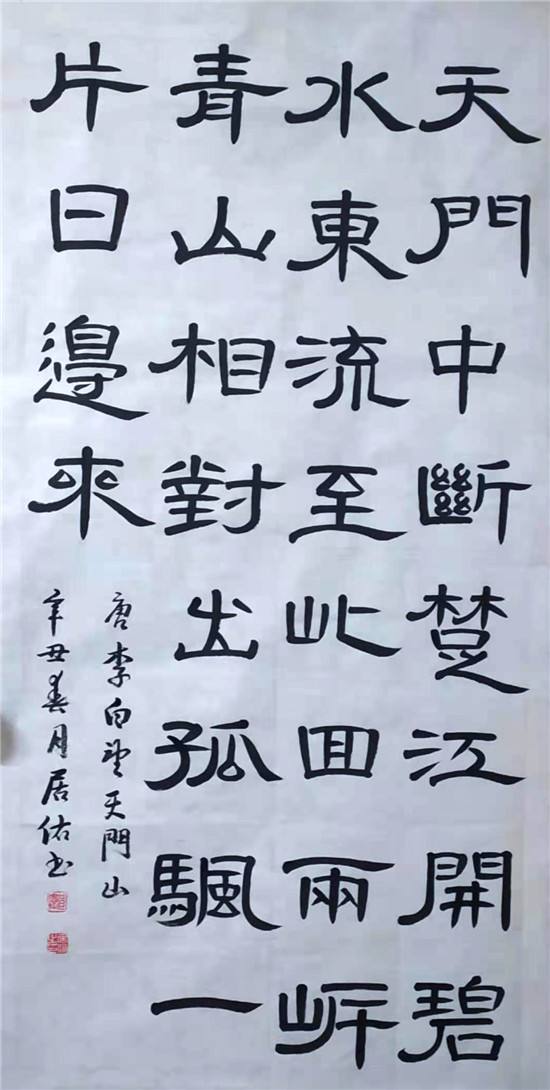 天門中斷楚江開碧
水東流至此回兩岸
青山相對出孤颿一
片日邊來
唐李白望天門山
辛丑春月居佑书